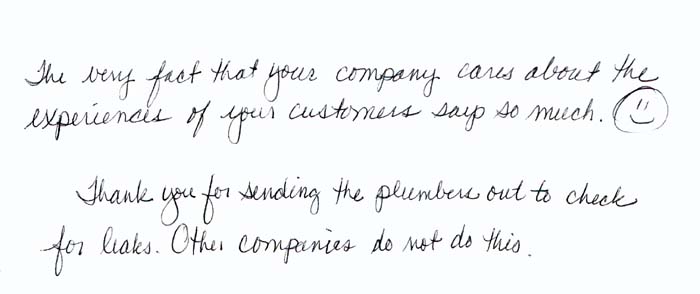 The very fact that your company cares about the
experiences of your customers says so much.
Thank you for sending the plumbers out to check
for leaks. Other companies do not do this.